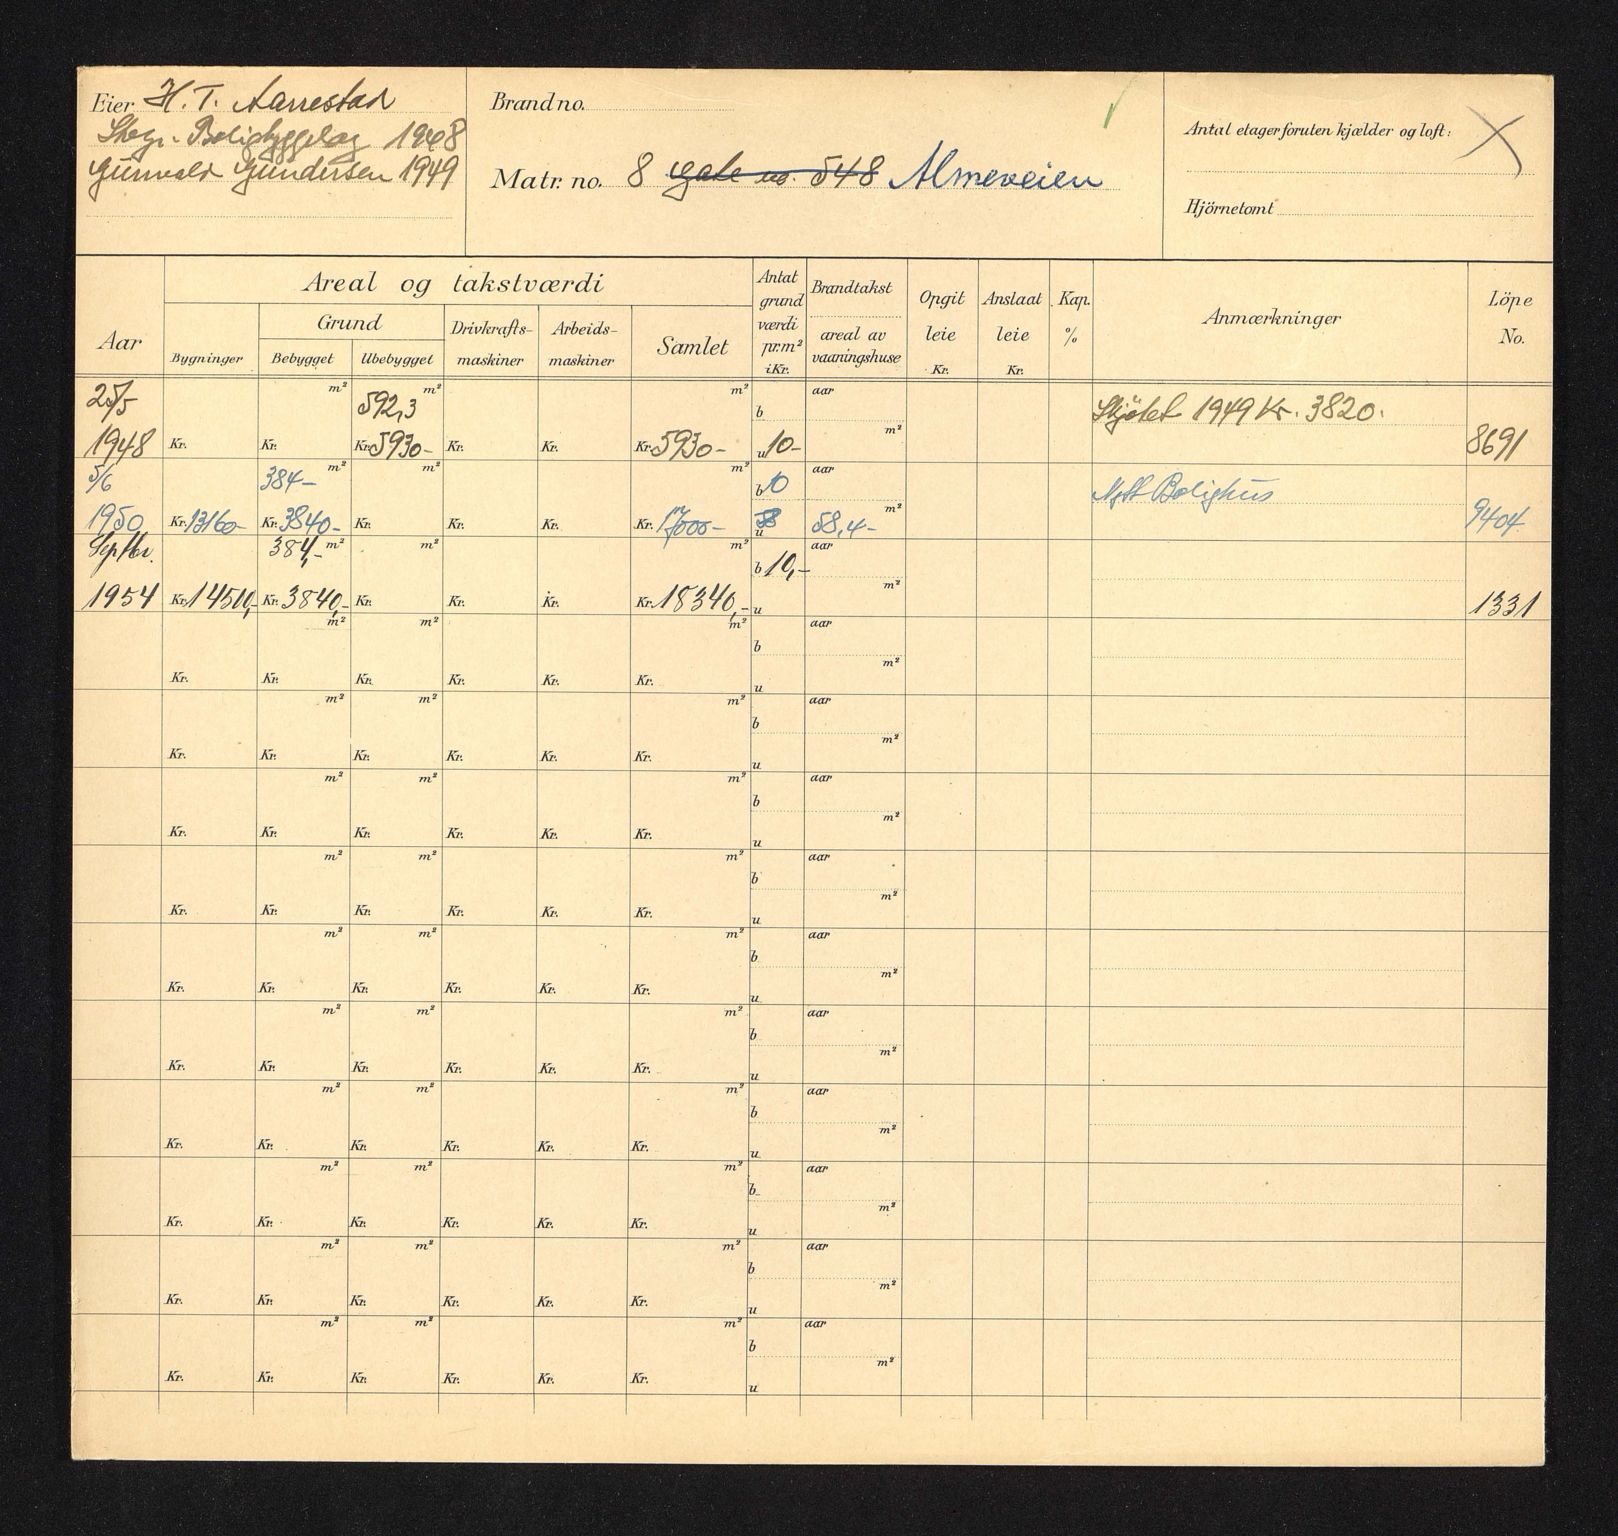 Eier H. T. Aarrestad
Boligbyggelag 1948
Gunvald Gundersen 1949
Brand no.
Matr. no. 8 gate no. 548 Almeveien
Antal etager foruten kjælder og loft:
Hjörnetomt
Aar
Areal og takstværdi
Bygninger
Grund
Bebygget
Ubebygget
Drivkrafts-
maskiner
Arbeids-
maskiner
Samlet
Antat
grund
værdi
pr.m²
i Kr.
Brandtakst
areal av
vaaningshuse
Opgit
leie
Kr.
Anslaat
leie
Kr.
Kap.
%
Anmærkninger
Löpe
No.
25/5 m² 592,3 m² m² b aar Skjötet 1949 Kr. 3820.
1948 Kr. Kr. Kr. 5930- Kr. Kr. Kr. 5930- u 10- m² 8691
5/6 384- m² m² m² b 10 aar Nytt Bolighus
1950 Kr. 13160- Kr. 3840- Kr. Kr. Kr. Kr. 17000- u 58,4- m² 9404
Septbr. 384,- m² m² m² b 10,- aar
1954 Kr. 14500,- Kr. 3840,- Kr. Kr. Kr. Kr. 18340,- u m² 1331
m² m² m² b aar
Kr. Kr. Kr. Kr. Kr. Kr. u m²
m² m² m² b aar
Kr. Kr. Kr. Kr. Kr. Kr. u m²
m² m² m² b aar
Kr. Kr. Kr. Kr. Kr. Kr. u m²
m² m² m² b aar
Kr. Kr. Kr. Kr. Kr. Kr. u m²
m² m² m² b aar
Kr. Kr. Kr. Kr. Kr. Kr. u m²
m² m² m² b aar
Kr. Kr. Kr. Kr. Kr. Kr. u m²
m² m² m² b aar
Kr. Kr. Kr. Kr. Kr. Kr. u m²
m² m² m² b aar
Kr. Kr. Kr. Kr. Kr. Kr. u m²
m² m² m² b aar
Kr. Kr. Kr. Kr. Kr. Kr. u m²
m² m² m² b aar
Kr. Kr. Kr. Kr. Kr. Kr. u m²